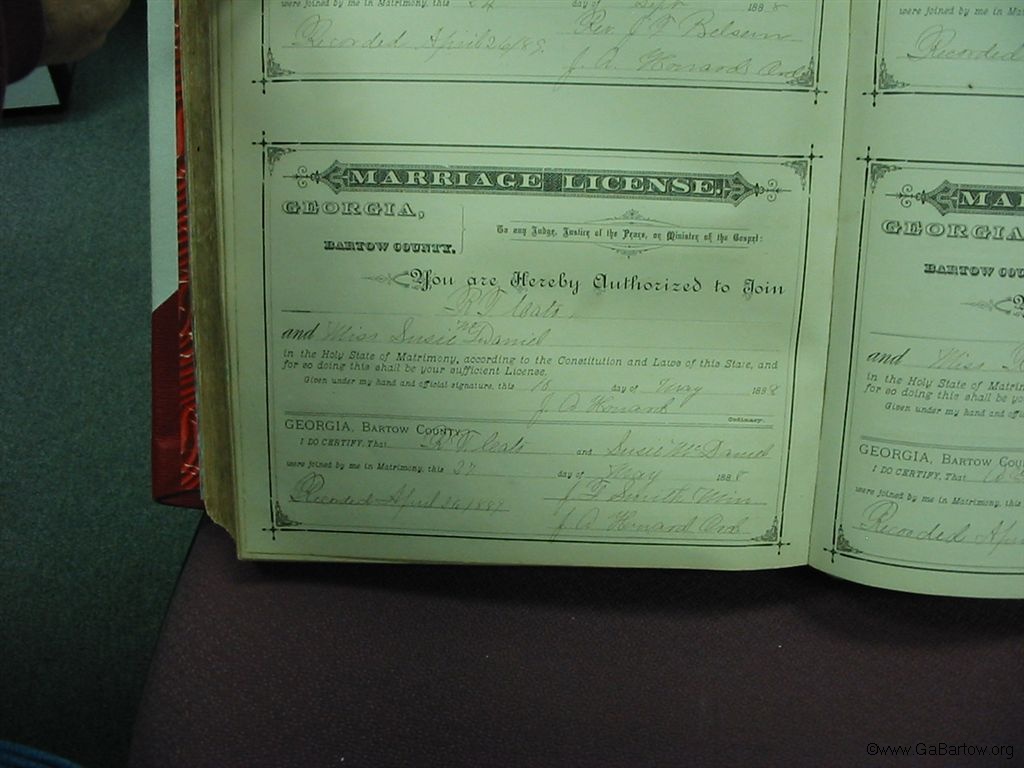 were joined by me in Matrimony, this 24 day of Sept 1888
Rev. J. Belsem
Recorded April 26/89.
J. A. Howard Ord
MARRIAGE LICENSE.
GEORGIA,
BARTOW COUNTY.
To any Judge, Justice of the Peace, or Minister of the Gospel:
You are Hereby Authorized to Join
R T Coats
and Miss Susie McDaniel
in the Holy State of Matrimony, according to the Constitution and Laws of this State, and
for so doing this shall be your sufficient License.
Given under my hand and official signature, this 18 day of May 1888
J. A. Howard Ordinary.
GEORGIA, BARTOW COUNTY.
I DO CERTIFY, That R T Coats and Susie McDaniel
were joined by me in Matrimony, this 27 day of May 1888
Recorded April 26, 1889
J F Smith Min
J. A. Howard Ord
were joined by me in Mat
Recorded
MAR
GEORGIA
BARTOW COU
and Miss
in the Holy State of Matrim
for so doing this shall be yo
Given under my hand and offi
GEORGIA, BARTOW COU
I DO CERTIFY, That
were joined by me in Matrimony, this
Recorded Apr
©www.GaBartow.org